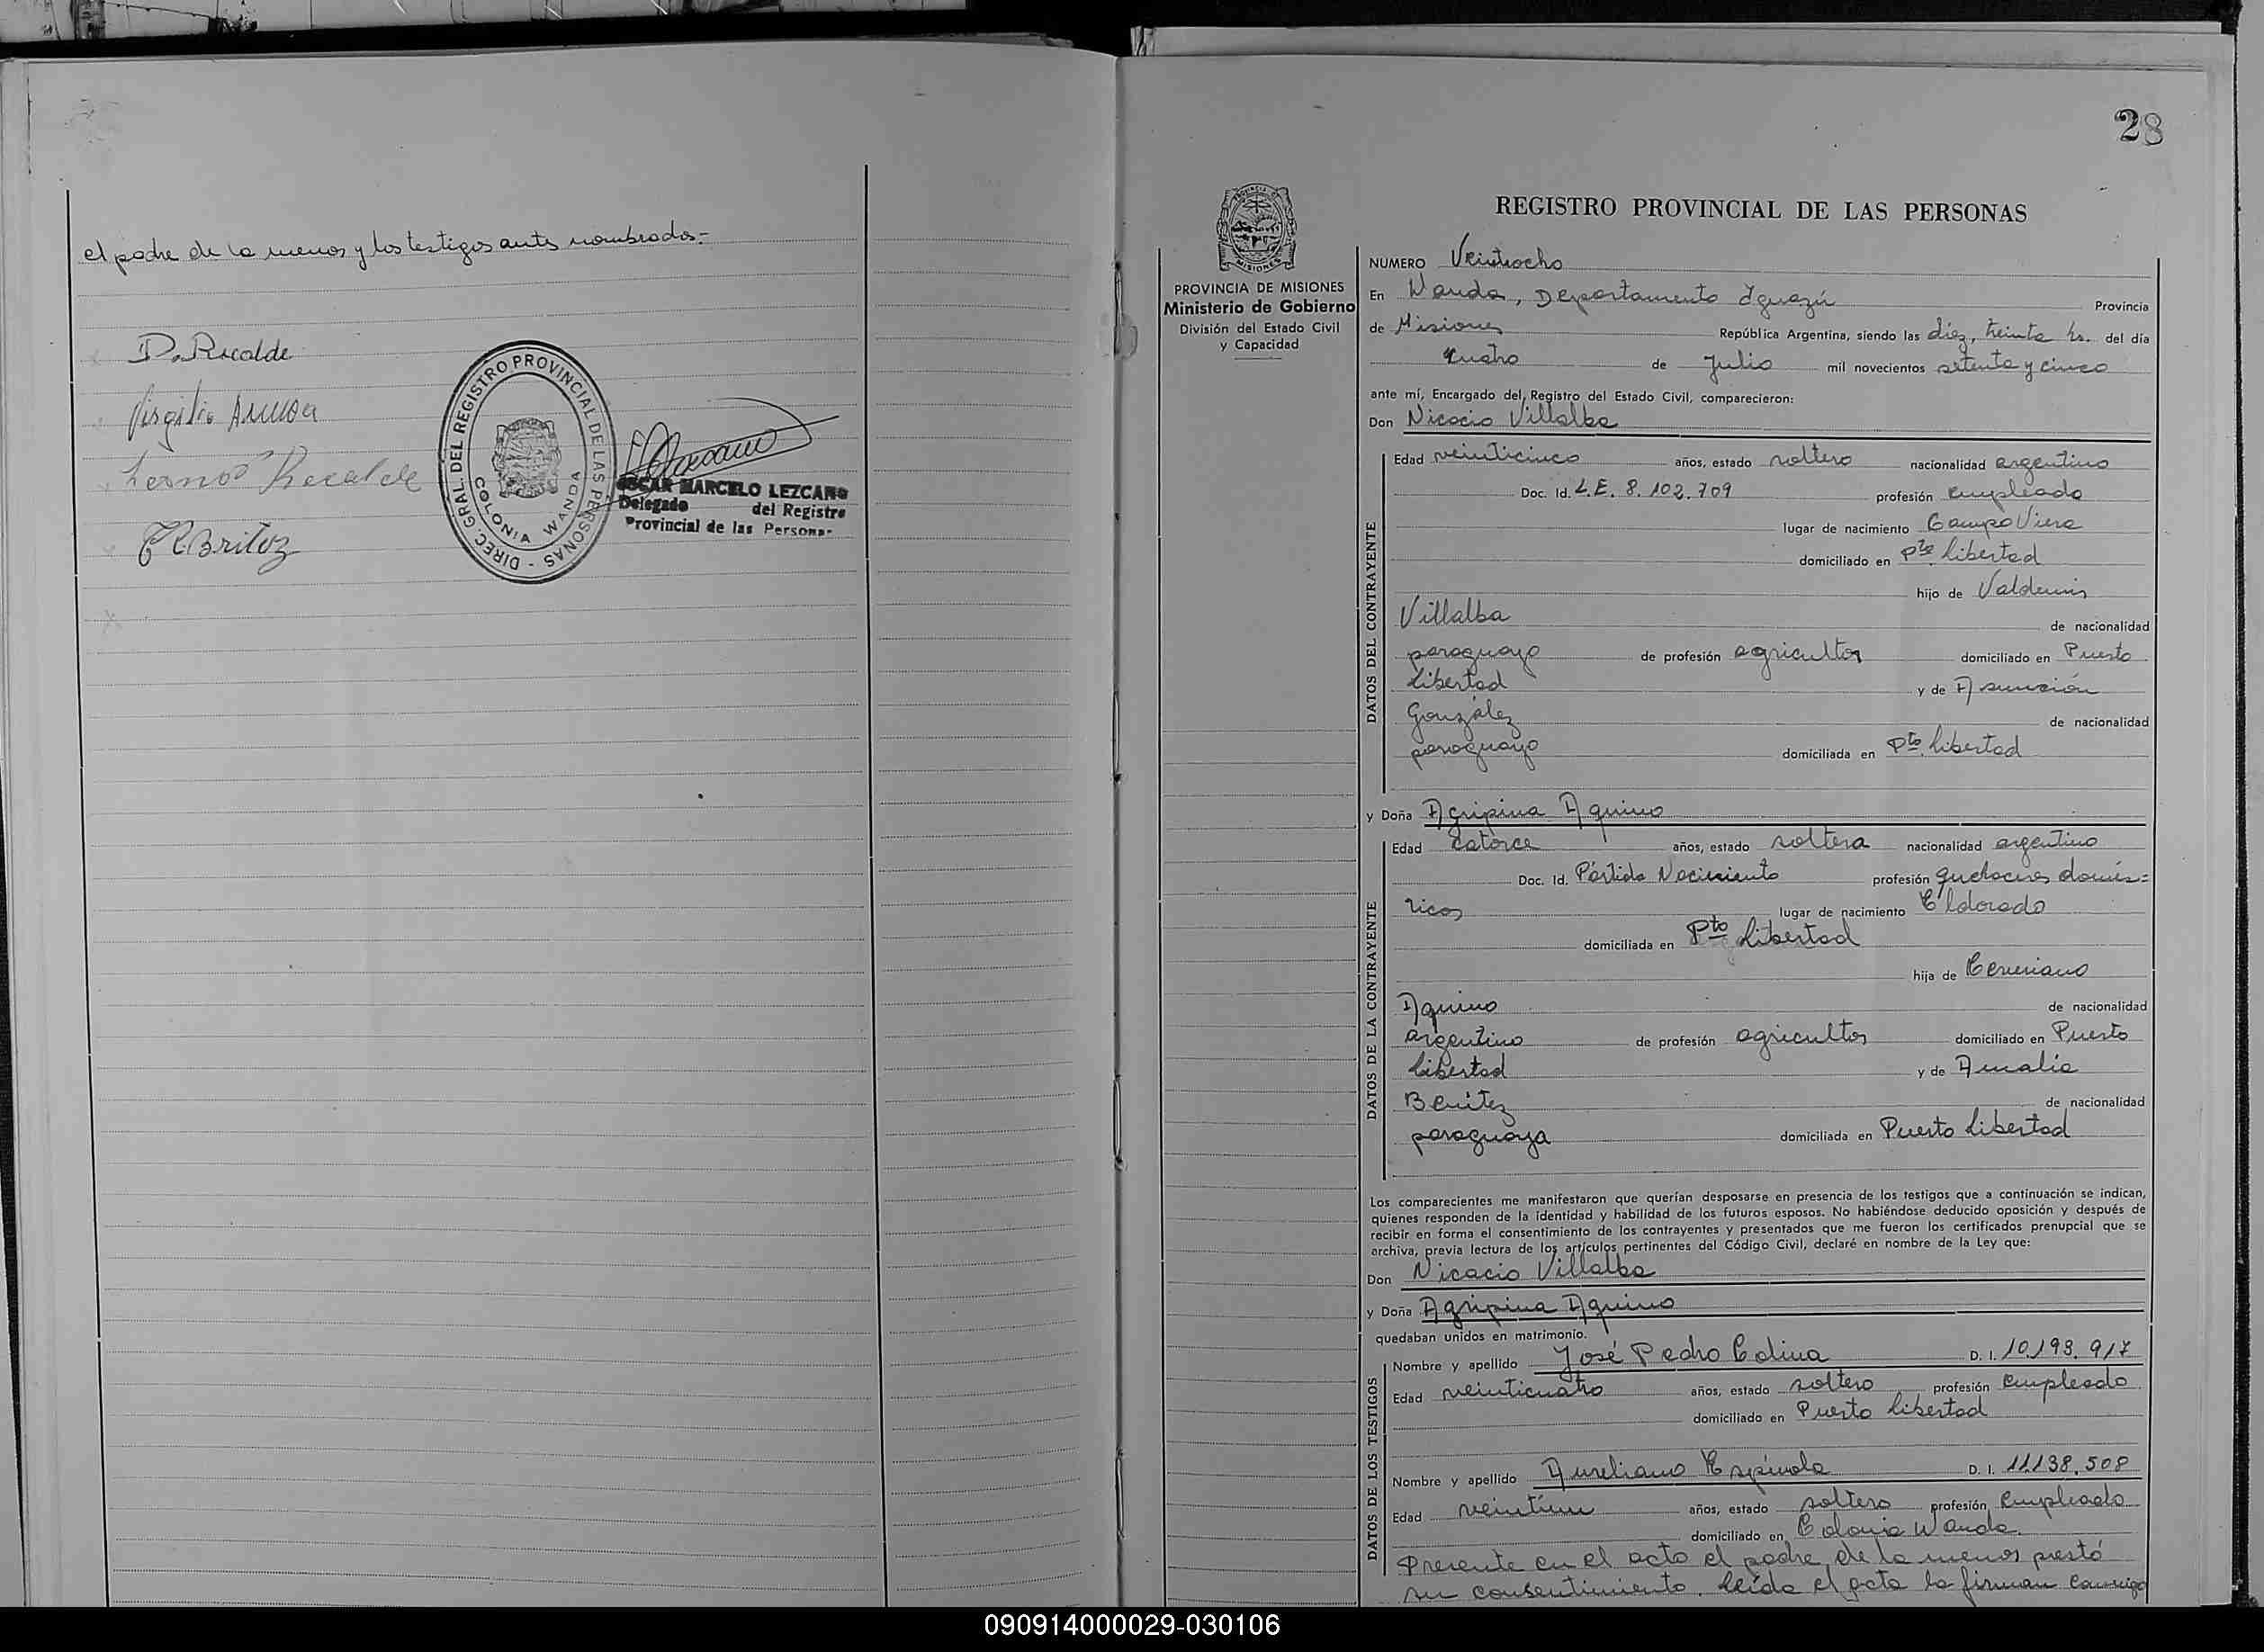 el padre de la menor y los testigos antes nombrados.-
D. Ricalde
Virgilio
Recalde
Britez
DIREC. GRAL. DEL REGISTRO PROVINCIAL DE LAS PERSONAS -
COLONIA WANDA
OSCAR MARCELO LEZCANO
Delegado del Registro
Provincial de las Persona-
28
MISIONES
PROVINCIA DE MISIONES
Ministerio de Gobierno
División del Estado Civil
y Capacidad
REGISTRO PROVINCIAL DE LAS PERSONAS
NUMERO Veintiocho
En Wanda, Departamento Iguazú Provincia
de Misiones República Argentina, siendo las diez, treinta hs. del día
cuatro de Julio mil novecientos setenta y cinco
ante mí, Encargado del Registro del Estado Civil, comparecieron:
Don Nicacio Villalba
DATOS DEL CONTRAYENTE
Edad veinticinco años, estado soltero nacionalidad argentino
Doc. Id. L.E. 8.102.709 profesión empleado
lugar de nacimiento Campo Viera
domiciliado en Pto Libertad
hijo de
Villalba de nacionalidad
paraguayo de profesión agricultor domiciliado en Puerto
Libertad y de Asunción
González de nacionalidad
paraguayo domiciliada en Pto. Libertad
y Doña Agripina Aquino
DATOS DE LA CONTRAYENTE
Edad catorce años, estado soltera nacionalidad argentino
Doc. Id. Pártida Nacimiento profesión quehaceres domés=
ticos lugar de nacimiento Eldorado
domiciliada en Pto Libertad
hija de
Aquino de nacionalidad
argentino de profesión agricultor domiciliado en Puerto
Libertad y de Amalia
Benítez de nacionalidad
paraguaya domiciliada en Puerto Libertad
Los comparecientes me manifestaron que querían desposarse en presencia de los testigos que a continuación se indican,
quienes responden de la identidad y habilidad de los futuros esposos. No habiéndose deducido oposición y después de
recibir en forma el consentimiento de los contrayentes y presentados que me fueron los certificados prenupcial que se
archiva, previa lectura de los artículos pertinentes del Código Civil, declaré en nombre de la Ley que:
Don Nicacio Villalba
y Doña Agripina Aquino
quedaban unidos en matrimonio.
DATOS DE LOS TESTIGOS
Nombre y apellido José Pedro Colina D. I. 10.193.917
Edad veinticuatro años, estado soltero profesión empleado
domiciliado en Puerto Libertad
Nombre y apellido Aureliano Espínola D. I. 11.138.508
Edad veintiun años, estado soltero profesión empleado
domiciliado en Colonia Wanda.
Presente en el acto el padre de la menor prestó
su consentimiento. Leída el acta la firman conmigo
090914000029-030106